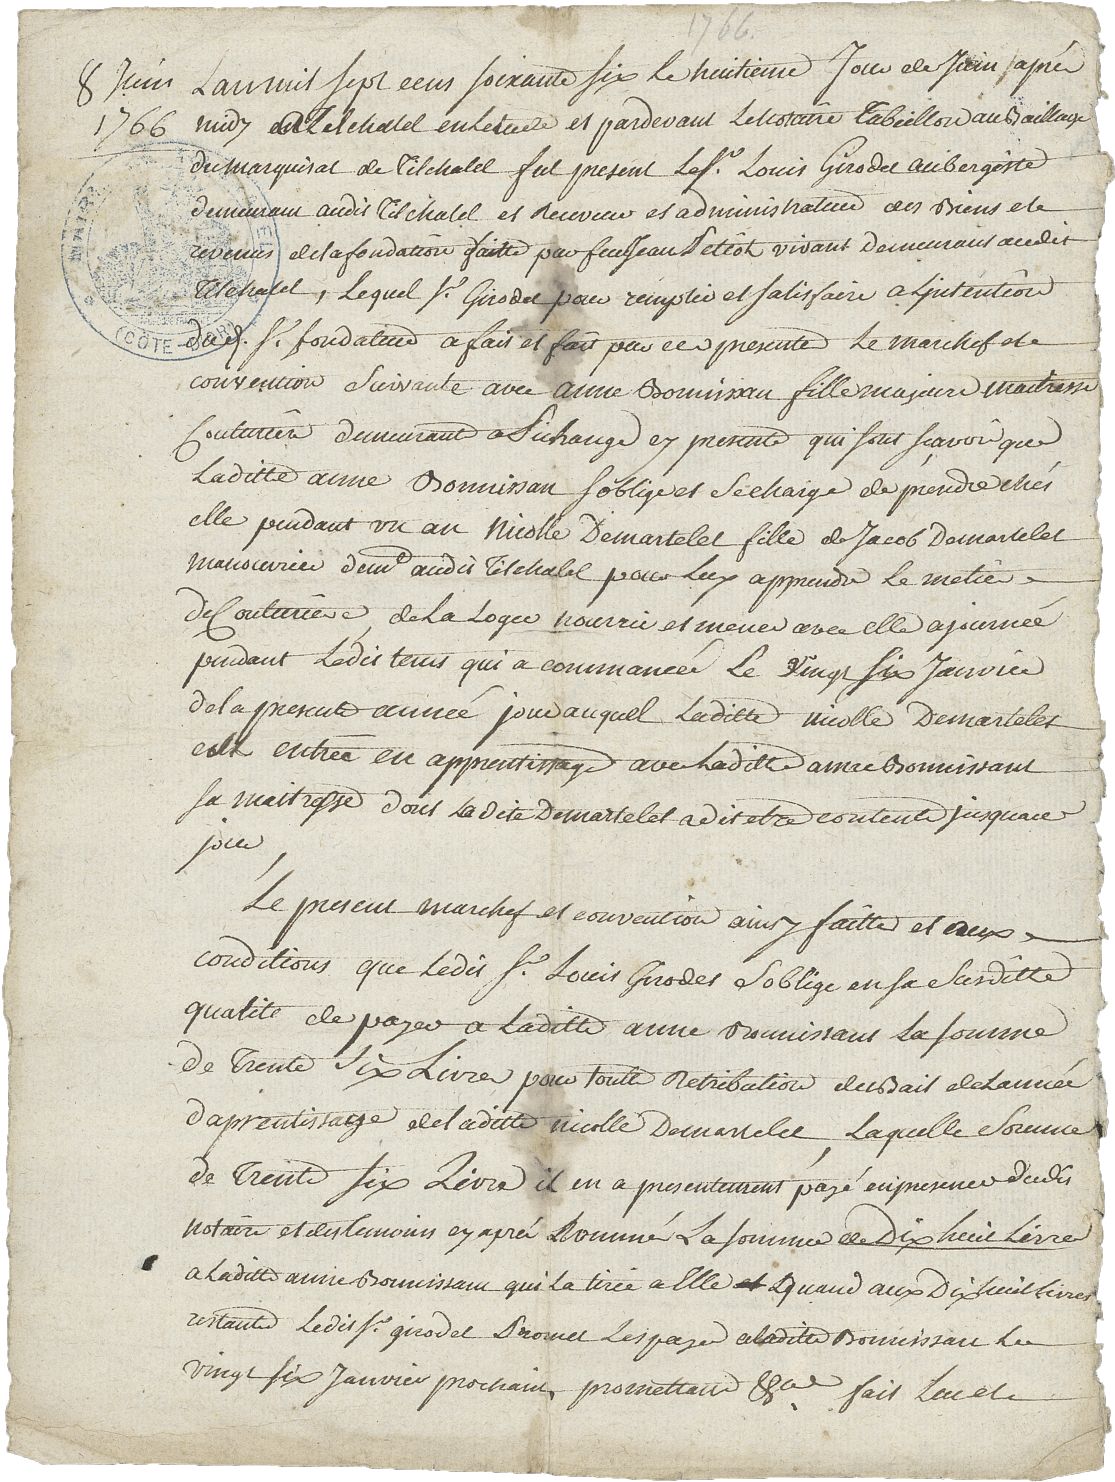 1766.
8 Juin
1766
Lan mil sept cens soixante six le huitieme Jour de Juin, apré
midy a Tilchatel en Letude et pardevant Le Notaire Tabellion au Baillage
du marquisat de Tilchatel fut present Le Sr. Louis Girodet aubergiste
demeurant audit Tilchatel et Receveur et administrateur des Biens et
revenus de la fondation faitte par feu Jean Petitot vivant Demeurant audit
Tilchatel, Lequel Sr. Girodet pour remplir et satisfaire a Lintention
dud. Sr. fondateur a fait et fait par ce presente Le marchef et
convention Suivante avec anne Bonnissan fille majeure maitresse
Couturière demeurant a Pichange cy presente qui sont scavoir que
Laditte anne Bonnissan soblige et se charge de prendre chés
elle pendant un an Nicolle Demartelet fille de Jacob Demartelet
manouvrier demt audit Tilchatel pour Luy apprendre Le metier
de Couturiere, de La Loger nourrir et mener avec elle a journée
pendant Ledit tems qui a commancée Le Vingt six Janvier
de la presente année jour auquel Laditte Nicolle Demartelet
est entrée en apprentissage avec Laditte anne Bonnissant
sa maitresse dont Ladite Demartelet a dit etre contente jusqua ce
jour,
Le present marchef et convention ainsy faitte et aux
conditions que Ledit Sr. Louis Girodet soblige en sa Susditte
qualite de payer a Laditte anne Bonnissant La somme
de Trente Six Livre pour toutte Retribution du Bail de Lannée
daprentissage de Laditte Nicolle Demartelet, Laquelle Somme
de Trente six Livre il en a presentement payé en presence dudit
notaire et des temoins cy apré Nommé La somme de Dix huit Livre
a Laditte anne Bonnissant qui La tiré a Elle et Quand aux Dix huit Livres
restante Ledit Sr. girodet Promet Les payer a Laditte Bonnissan Le
vingt six Janvier prochain, promettant &ca fait Lu et
MAIRIE
(CÔTE-D'OR)